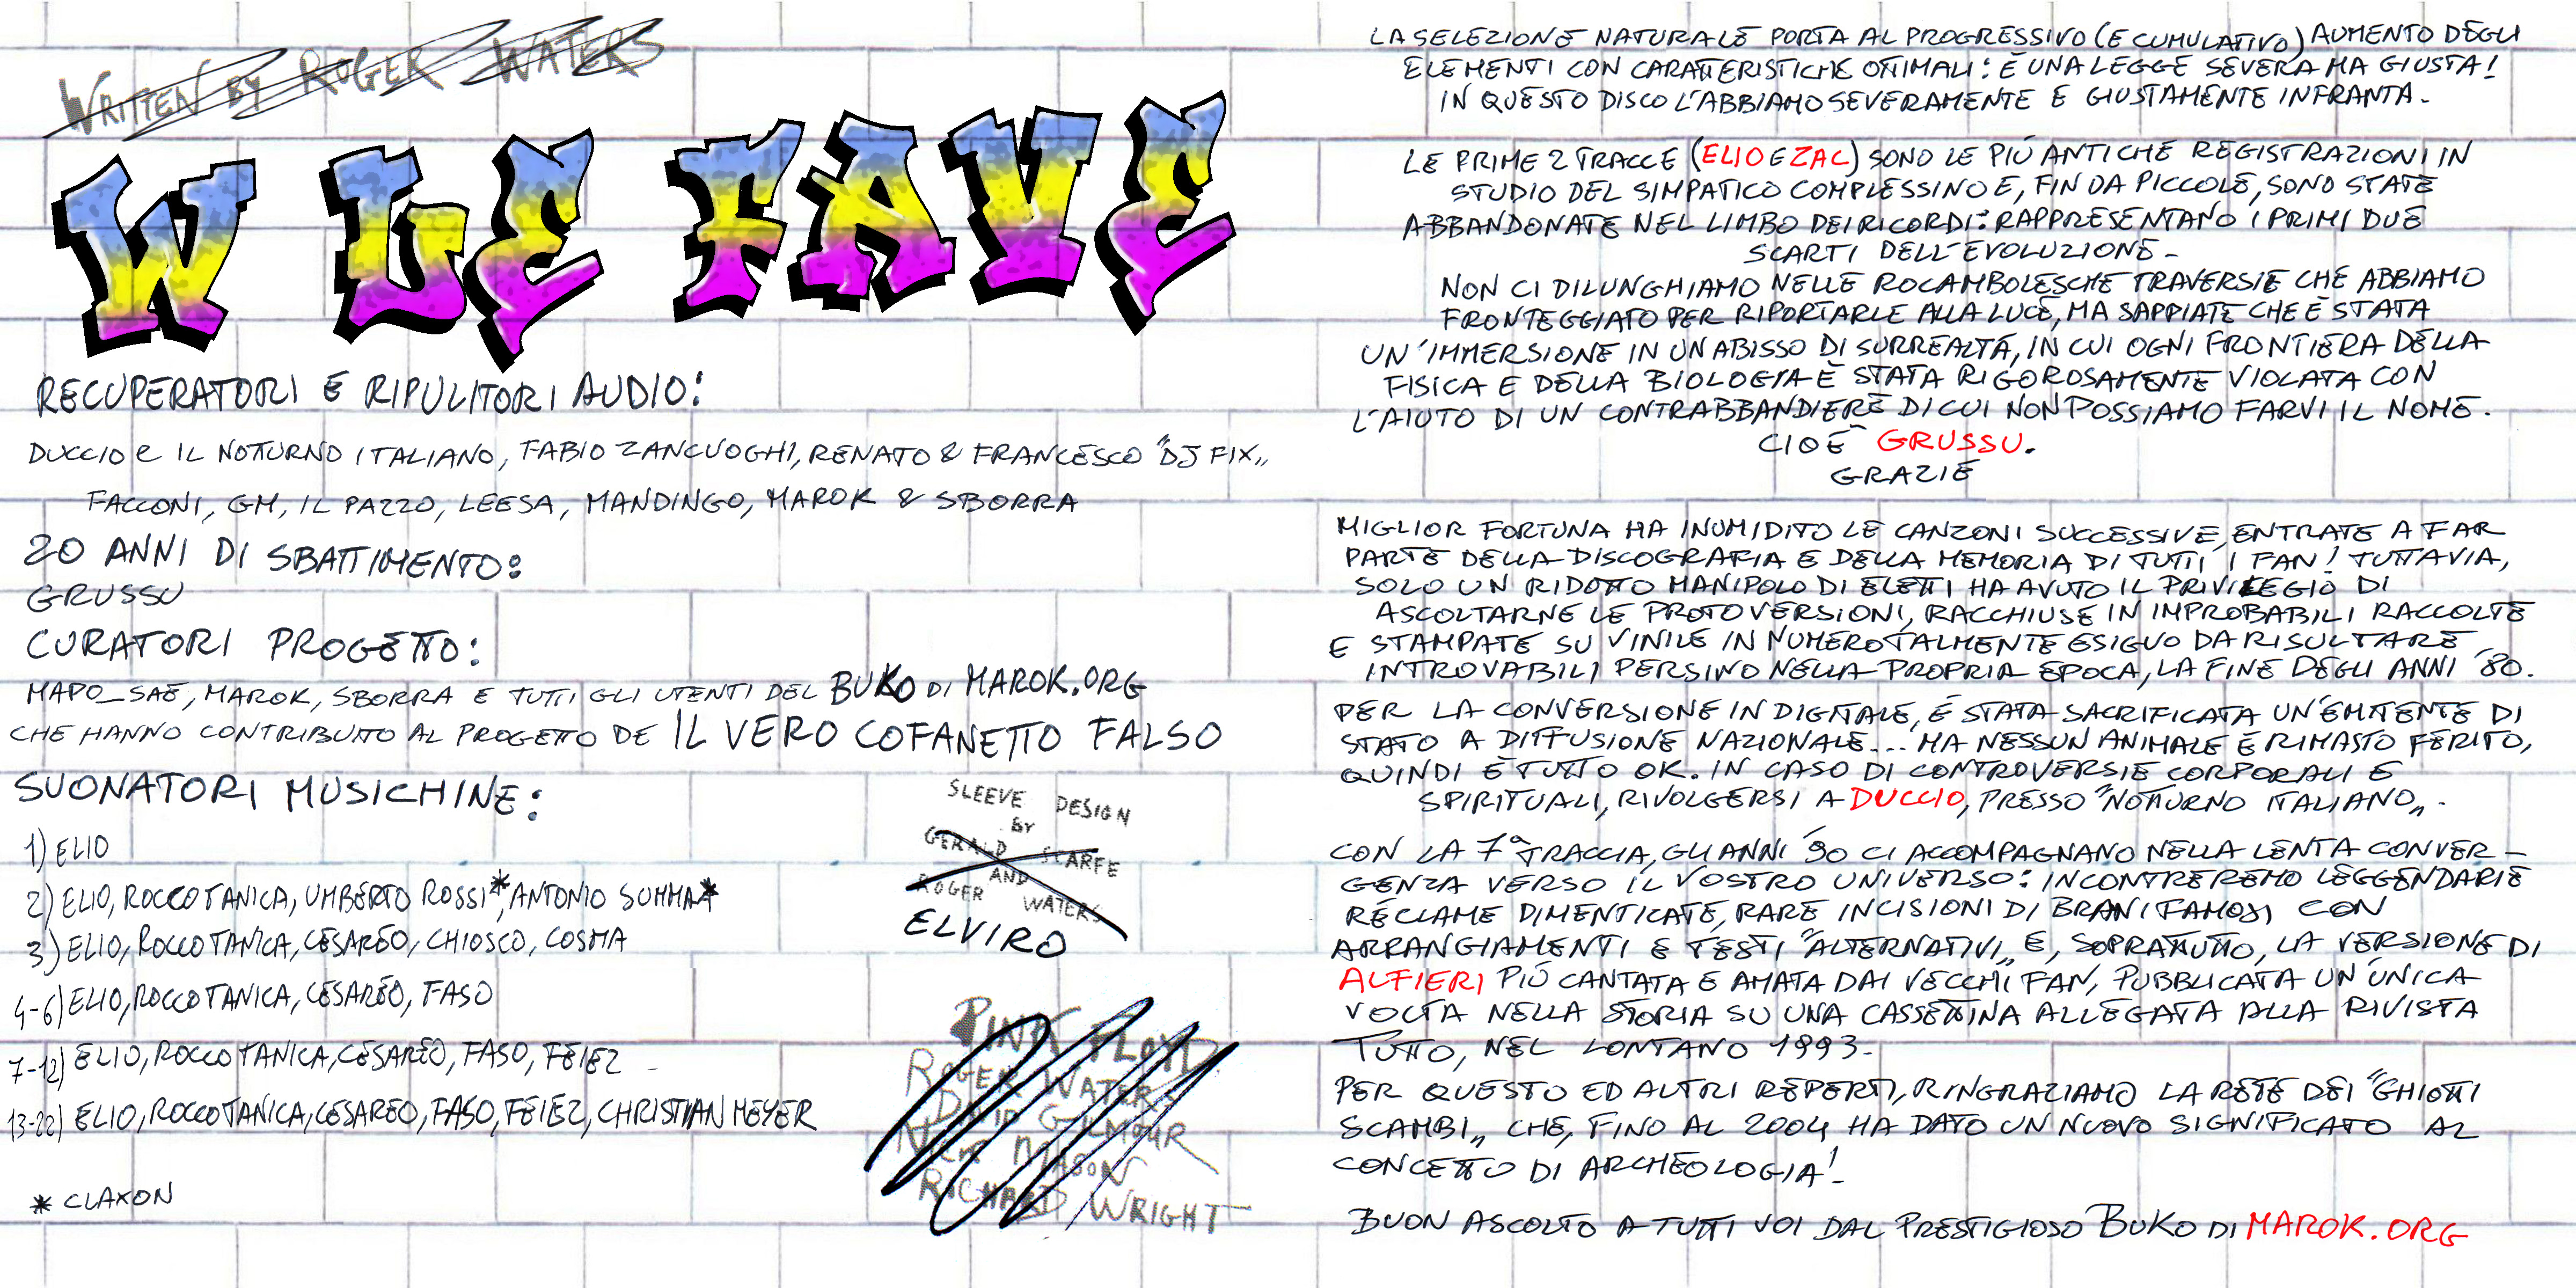 WRITTEN BY ROGER WATERS
W LE FAVE
RECUPERATORI E RIPULITORI AUDIO:
DUCCIO E IL NOTTURNO ITALIANO, FABIO ZANCUOGHI, RENATO & FRANCESCO "DJ FIX„
FACCONI, GM, IL PAZZO, LEESA, MANDINGO, MAROK & SBORRA
20 ANNI DI SBATTIMENTO:
GRUSSU
CURATORI PROGETTO:
MAPO_SAE, MAROK, SBORRA E TUTTI GLI UTENTI DEL BUKO DI MAROK.ORG
CHE HANNO CONTRIBUITO AL PROGETTO DE IL VERO COFANETTO FALSO
SUONATORI MUSICHINE:
1) ELIO
2) ELIO, ROCCO TANICA, UMBERTO ROSSI*, ANTONIO SUMMA*
3) ELIO, ROCCO TANICA, CESAREO, CHIOSCO, COSMA
4-6) ELIO, ROCCO TANICA, CESAREO, FASO
7-12) ELIO, ROCCO TANICA, CESAREO, FASO, FEIEZ
13-22) ELIO, ROCCO TANICA, CESAREO, FASO, FEIEZ, CHRISTIAN MEYER
* CLAXON
SLEEVE DESIGN
BY
GERALD SCARFE
AND
ROGER WATERS
ELVIRO
PINK FLOYD
ROGER WATERS
DAVID GILMOUR
NICK MASON
RICHARD WRIGHT
LA SELEZIONE NATURALE PORTA AL PROGRESSIVO (E CUMULATIVO) AUMENTO DEGLI
ELEMENTI CON CARATTERISTICHE OTTIMALI: È UNA LEGGE SEVERA MA GIUSTA!
IN QUESTO DISCO L'ABBIAMO SEVERAMENTE E GIUSTAMENTE INFRANTA.
LE PRIME 2 TRACCE (ELIO E ZAC) SONO LE PIÚ ANTICHE REGISTRAZIONI IN
STUDIO DEL SIMPATICO COMPLESSINO E, FIN DA PICCOLE, SONO STATE
ABBANDONATE NEL LIMBO DEI RICORDI: RAPPRESENTANO I PRIMI DUE
SCARTI DELL'EVOLUZIONE.
NON CI DILUNGHIAMO NELLE ROCAMBOLESCHE TRAVERSIE CHE ABBIAMO
FRONTEGGIATO PER RIPORTARLE ALLA LUCE, MA SAPPIATE CHE È STATA
UN'IMMERSIONE IN UN ABISSO DI SURREALTÁ, IN CUI OGNI FRONTIERA DELLA
FISICA E DELLA BIOLOGIA È STATA RIGOROSAMENTE VIOLATA CON
L'AIUTO DI UN CONTRABBANDIERE DI CUI NON POSSIAMO FARVI IL NOME.
CIOÈ GRUSSU.
GRAZIE
MIGLIOR FORTUNA HA INUMIDITO LE CANZONI SUCCESSIVE, ENTRATE A FAR
PARTE DELLA DISCOGRAFIA E DELLA MEMORIA DI TUTTI I FAN! TUTTAVIA,
SOLO UN RIDOTTO MANIPOLO DI ELETTI HA AVUTO IL PRIVILEGIO DI
ASCOLTARNE LE PROTOVERSIONI, RACCHIUSE IN IMPROBABILI RACCOLTE
E STAMPATE SU VINILE IN NUMERO TALMENTE ESIGUO DA RISULTARE
INTROVABILI PERSINO NELLA PROPRIA EPOCA, LA FINE DEGLI ANNI '80.
PER LA CONVERSIONE IN DIGITALE, È STATA SACRIFICATA UN'EMITTENTE DI
STATO A DIFFUSIONE NAZIONALE... MA NESSUN ANIMALE È RIMASTO FERITO,
QUINDI È TUTTO OK. IN CASO DI CONTROVERSIE CORPORALI E
SPIRITUALI, RIVOLGERSI A DUCCIO, PRESSO "NOTTURNO ITALIANO„.
CON LA 7ª TRACCIA, GLI ANNI '90 CI ACCOMPAGNANO NELLA LENTA CONVER-
GENZA VERSO IL VOSTRO UNIVERSO: INCONTREREMO LEGGENDARIE
RÉCLAME DIMENTICATE, RARE INCISIONI DI BRANI FAMOSI CON
ARRANGIAMENTI E TESTI "ALTERNATIVI„ E, SOPRATTUTTO, LA VERSIONE DI
ALFIERI PIÚ CANTATA E AMATA DAI VECCHI FAN, PUBBLICATA UN'UNICA
VOLTA NELLA STORIA SU UNA CASSETTINA ALLEGATA ALLA RIVISTA
TUTTO, NEL LONTANO 1993.
PER QUESTO ED ALTRI REPERTI, RINGRAZIAMO LA RETE DEI "GHIOTTI
SCAMBI„ CHE, FINO AL 2004 HA DATO UN NUOVO SIGNIFICATO AL
CONCETTO DI ARCHEOLOGIA!
BUON ASCOLTO A TUTTI VOI DAL PRESTIGIOSO BUKO DI MAROK.ORG